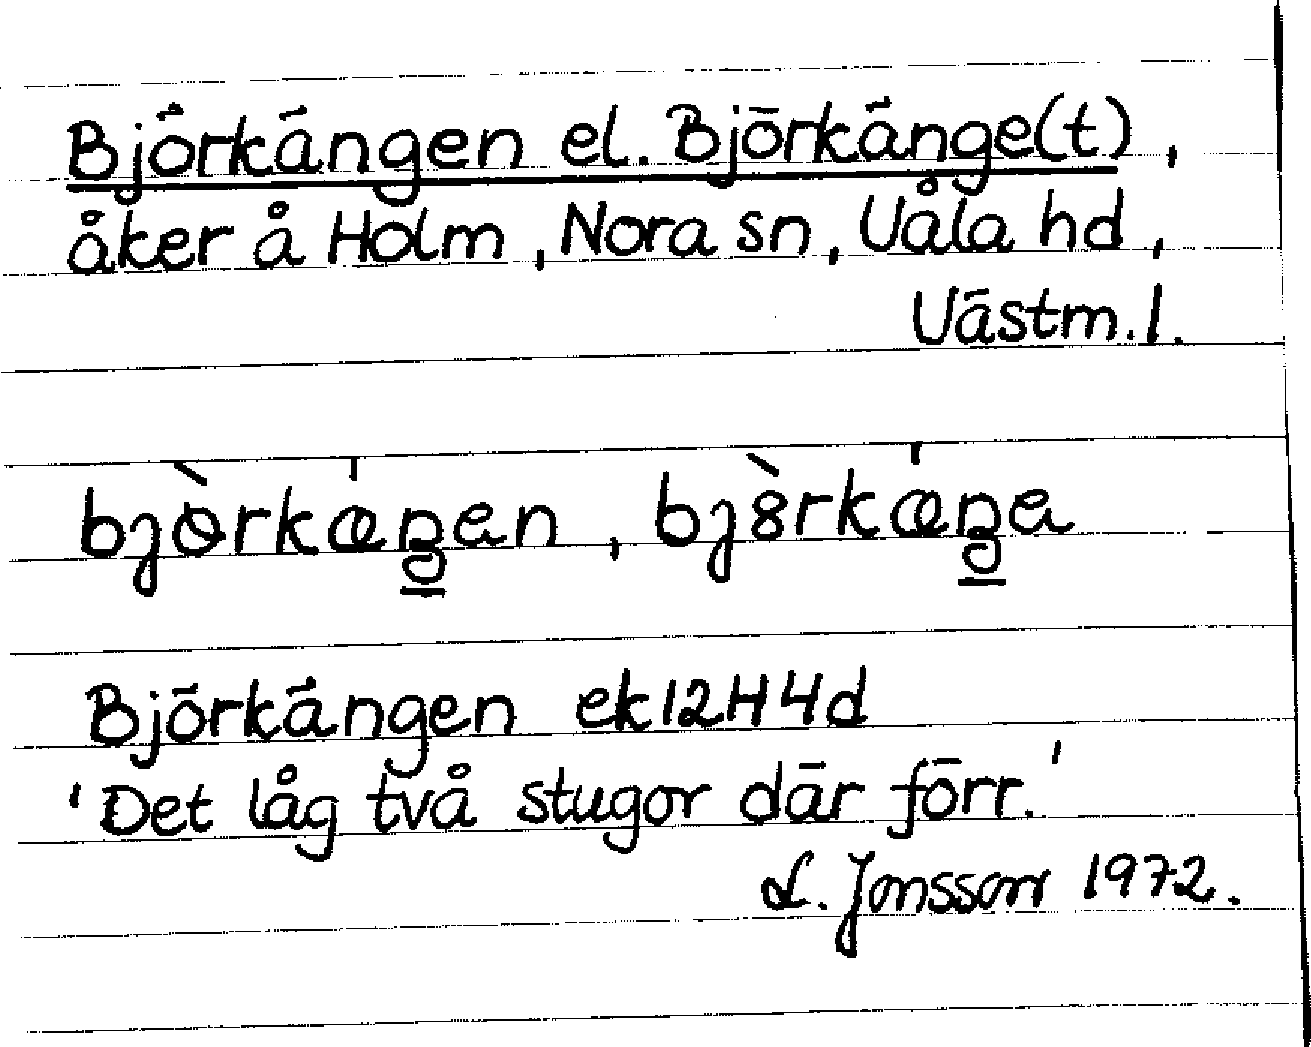 Björkängen el. Björkänge(t),
åker å Holm, Nora sn, Våla hd,
Västm.l.
bjö̀rkæ̍ŋen, bjö̀rkæ̍ŋe
Björkängen ek 12H4d
'Det låg två stugor där förr.'
L. Jonsson 1972.